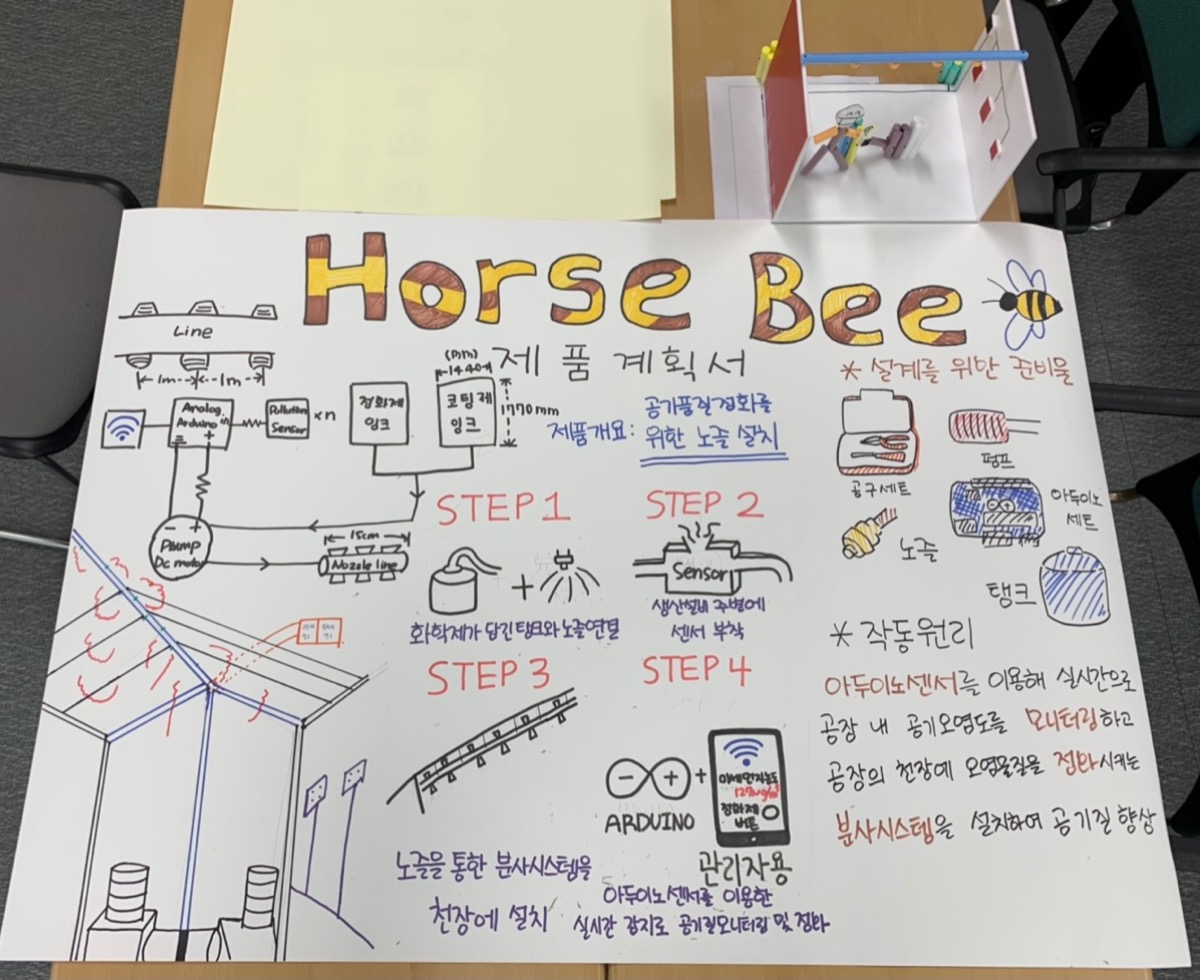 Horse Bee
제품계획서
제품개요: 공기품질정화를
위한 노즐 설치
Line
1m
1m
Analog in
Arduino
Pollution
Sensor
×n
정화제
잉크
(mm)
1440
코팅제
잉크
1770mm
Pump
Dc motor
15cm
Nozzle line
STEP 1
+
화학제가 담긴 탱크와 노즐 연결
STEP 2
Sensor
생산설비 주변에
센서 부착
STEP 3
노즐을 통한 분사시스템을
천장에 설치
STEP 4
ARDUINO
+
미세먼지농도
127ug/m³
정화제
버튼
관리자용
아두이노센서를 이용한
실시간 감지로 공기질모니터링 및 정화
* 설계를 위한 준비물
공구세트
펌프
노즐
아두이노
세트
탱크
* 작동원리
아두이노센서를 이용해 실시간으로
공장 내 공기오염도를 모니터링하고
공장의 천장에 오염물질을 정화시키는
분사시스템을 설치하여 공기질 향상